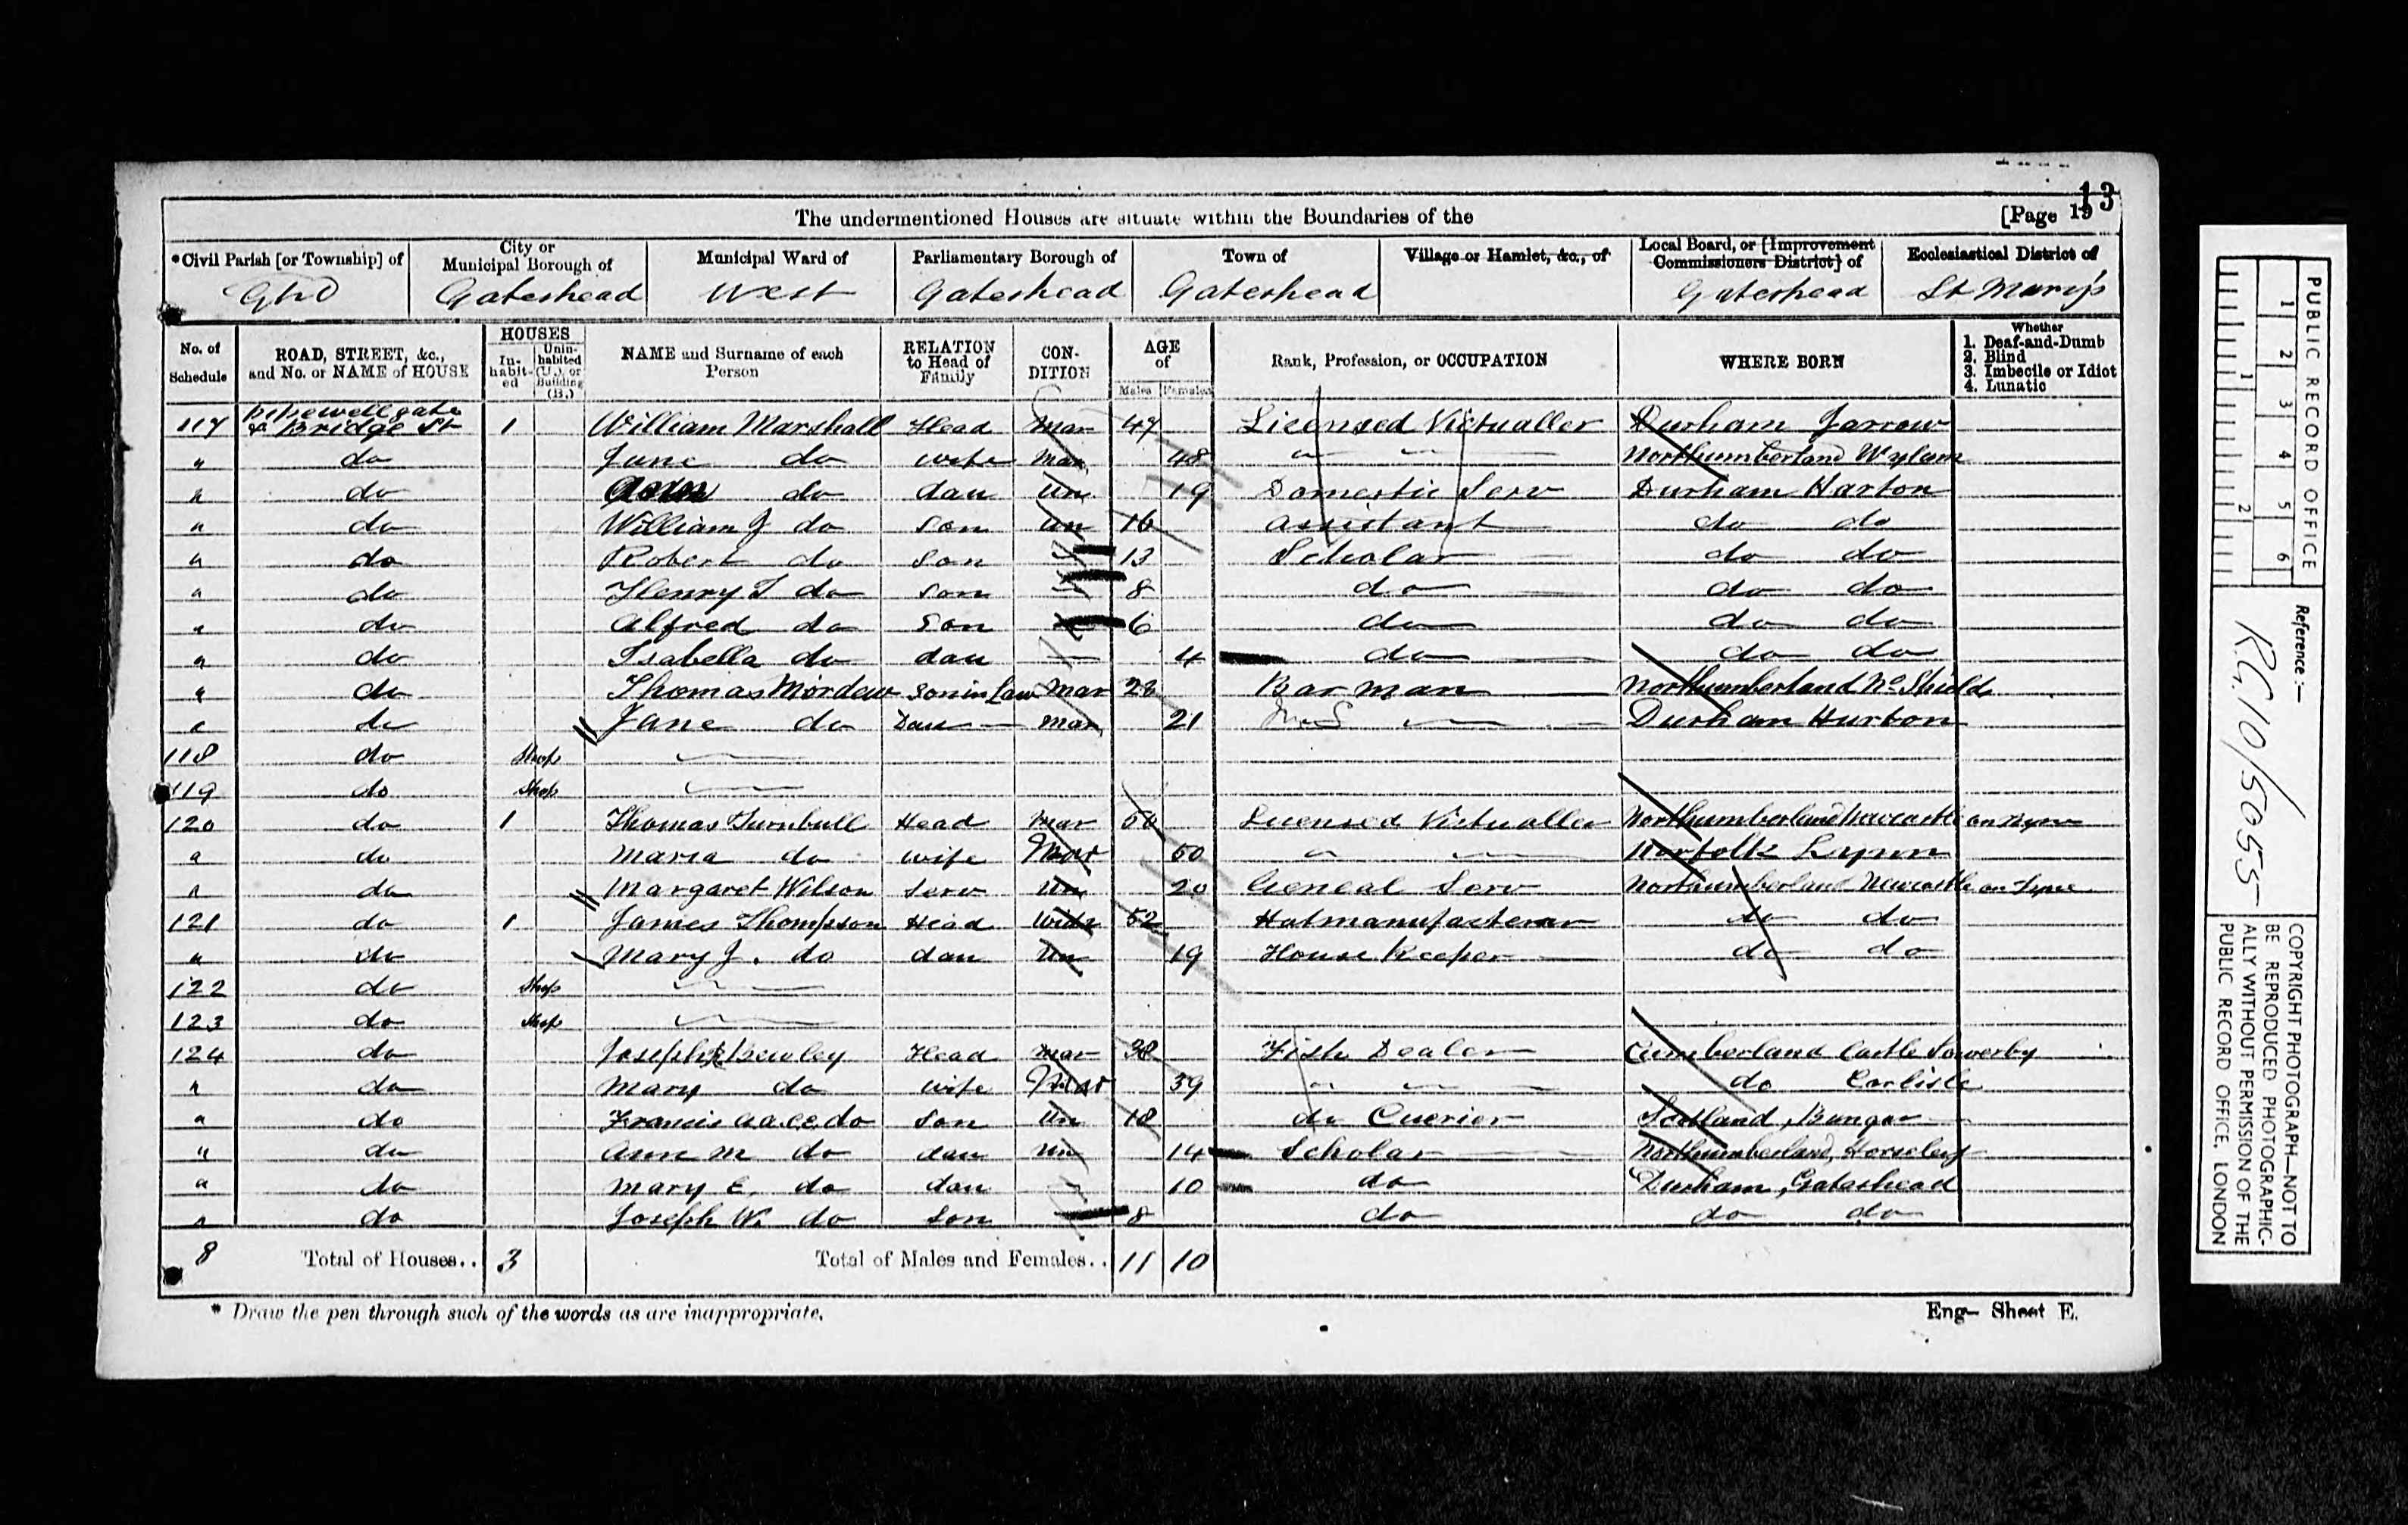 13
The undermentioned Houses are situate within the Boundaries of the [Page 19
*Civil Parish [or Township] of
City or Municipal Borough of
Municipal Ward of
Parliamentary Borough of
Town of
Village or Hamlet, &c., of
Local Board, or [Improvement Commissioners District] of
Ecclesiastical District of
Ghd Gateshead West Gateshead Gateshead Gateshead St Mary's
No. of Schedule
ROAD, STREET, &c., and No. or NAME of HOUSE
HOUSES
In-habit-ed
Unin-habited (U.), or Building (B.)
NAME and Surname of each Person
RELATION to Head of Family
CON-DITION
AGE of
Males Females
Rank, Profession, or OCCUPATION
WHERE BORN
Whether
1. Deaf-and-Dumb
2. Blind
3. Imbecile or Idiot
4. Lunatic
117 Pipewellgate & Bridge St 1 William Marshall Head Mar 47 Licensed Victualler Durham Jarrow
" do Jane do wife Mar 48 Northumberland Wylam
" do do dau Un 19 Domestic Serv Durham Harton
" do William J do Son Un 16 assistant do do
" do Robert do Son 13 Scholar do do
" do Henry T do Son 8 do do do
" do Alfred do Son 6 do do do
" do Isabella do dau 4 do do do
" do Thomas Mordew son in Law Mar 23 Bar man Northumberland No Shields
" do Jane do Dau Mar 21 Durham Harton
118 do Shop
119 do Shop
120 do 1 Thomas Turnbull Head Mar 50 Licensed Victualler Northumberland Newcastle on Tyne
" do Maria do wife Mar 50 Norfolk Lynn
" do Margaret Wilson Serv Un 20 Geneal Serv Northumberland Newcastle on Tyne
121 do 1 James Thompson Head Widr 52 Hatmanufacterer do do
" do Mary J. do dau Un 19 House Keeper do do
122 do Shop
123 do Shop
124 do Joseph Bewley Head Mar 38 Fish Dealer Cumberland Castle Sowerby
" do Mary do wife Mar 39 do Carlisle
" do Francis do Son Un 18 do Currier Scotland,
" do Ann M do dau Un 14 Scholar Northumberland, Horseley
" do Mary E. do dau 10 do Durham, Gateshead
" do Joseph W. do Son 8 do do do
8 Total of Houses.. 3 Total of Males and Females.. 11 10
* Draw the pen through such of the words as are inappropriate.
Eng- Sheet E.
PUBLIC RECORD OFFICE
1 2 3 4 5 6
1 2
Reference:-
R.G. 10/5055
COPYRIGHT PHOTOGRAPH—NOT TO
BE REPRODUCED PHOTOGRAPHIC-
ALLY WITHOUT PERMISSION OF THE
PUBLIC RECORD OFFICE, LONDON